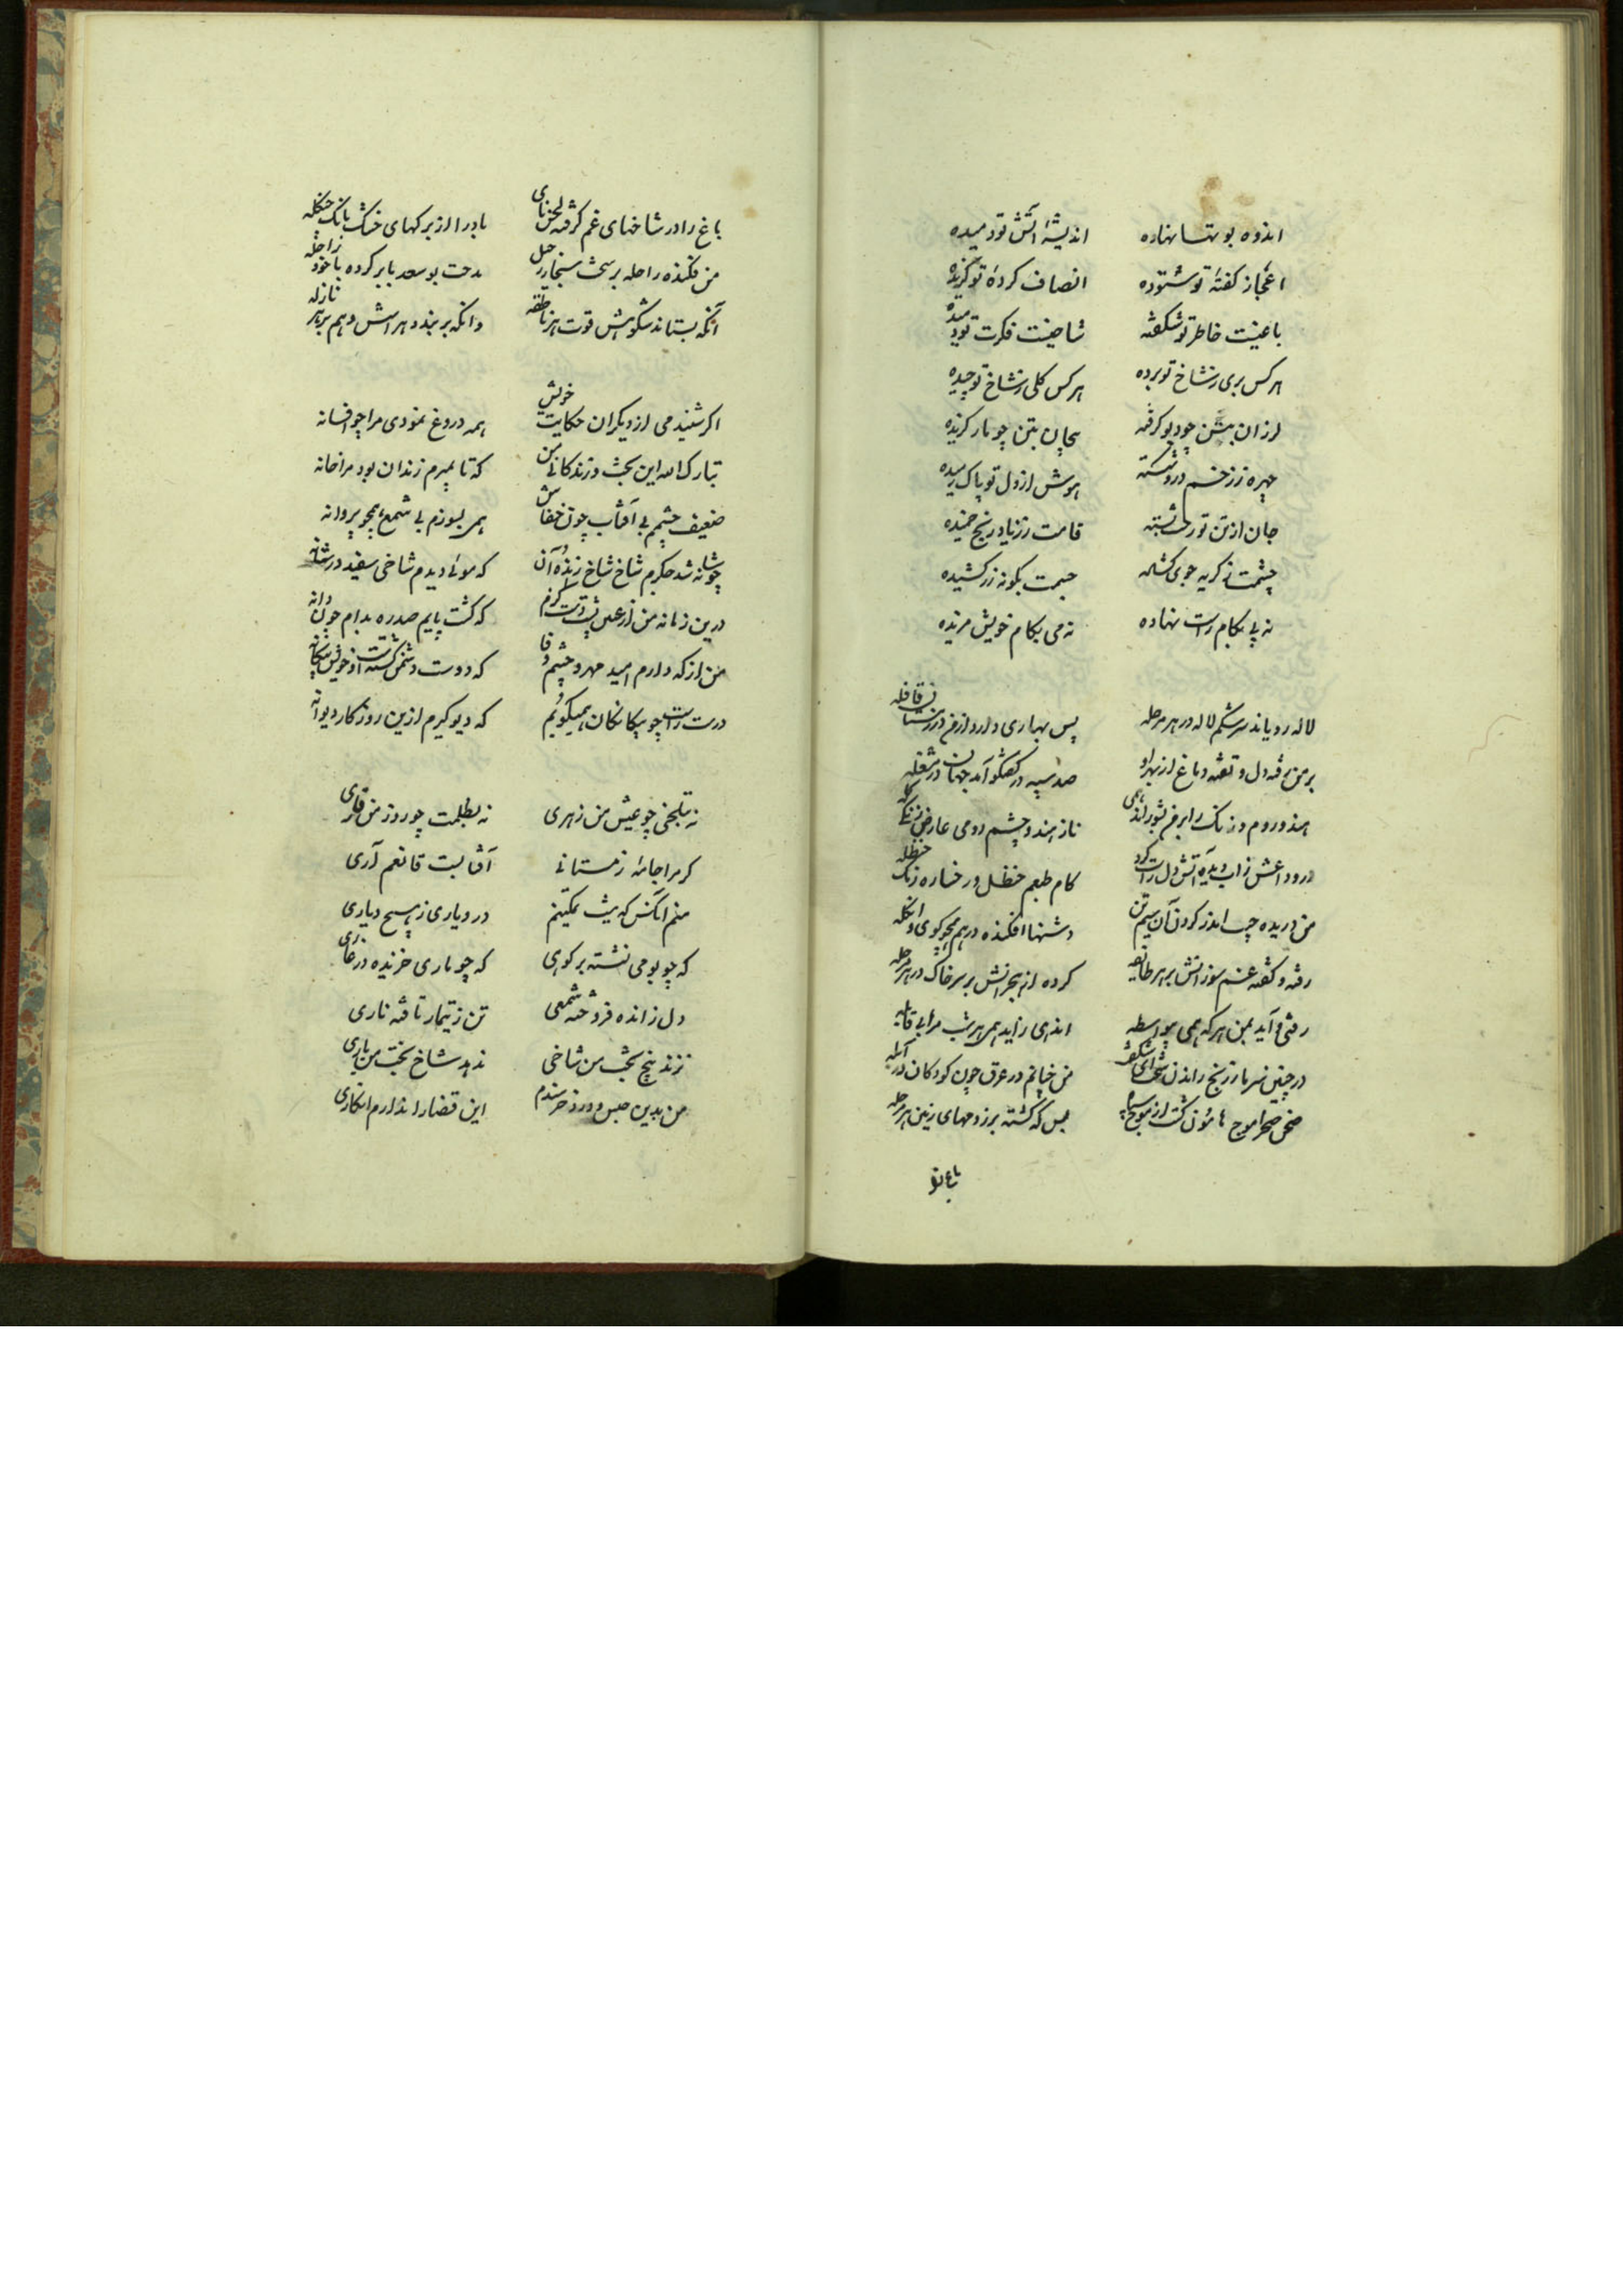 اندوه بو تنها نهاده اندیشهٔ آتش تو دمیده
اعجاز کفتهٔ تو ستوده انصاف کردهٔ تو کزیده
باغیست خاطر تو شکفته شاخیست فکرت تو دمیده
هر کس بری ز شاخ تو برده هر کس کلی ز شاخ تو چیده
لرزان بتن چو دیو کرفته پیچان بتن چو مار کزیده
چهره ز زخم درد شکسته هوش از دل تو پاک رمیده
جان از تن تو رخت قامت ز زیاد رنج خمیده
چشمت ز کریه جوی کشاده جسمت بکونه زر کشیده
نه پی بکام راست نهاده نه می بکام خویش مزیده
لاله رویاند سرشکم لاله در هر مرحله پس بهاری دارد از من در زمستان قافله
بر من رفته دل و تفته دماغ از بهر او صد سپه در کفتکو آمد جهان در مشغله
هند و روم و زنک را بر من بشور اند همی ناز هند و چشم رومی عارض زنکی کله
درود اعش ز آب دیده آتش دل راست کرد کام طبعم حنظل و رخساره رنک حنظله
من دریده جیب اندر کردن آن سیم تن دستها افکنده در هم همچو کوی و انکله
رفته و کفته غم سوزانش بر هر طایفه کرده از هجرانش بر سر خاک در هر مرحله
رفتی و آید بمن هر که همی بیواسطه اندهی زاید همی هر شب مرا بی قابله
در چنین سرما ز رنج راندن شبهای من چنانم در عرق چون کودکان در آبله
صحن صحرا موج هامون کشت از موج سپاه بس که کشته بر زمهای زمین
باغ تو
باغ را در شاخهای غم کرفته لحن نای باد را از برکهای خشک بانک جنکله
من فکنده راحله بر پشت سنجاری جبل مدحت بو سعد بابر کرده با خود راحله
آنکه بستاند شکوهش قوت هر ناطقه وانکه بر بندد هراسش وهم بر هر نازله
اکر شنیدمی از دیکران حکایت خویش همه دروغ نمودی مرا چو افسانه
تبارک الله این بخت و زندکانی من که تا بمیرم زندان بود مرا خانه
ضعیف چشم بی آفتاب چون خفاش همی بسوزم بی شمع همچو پروانه
چو شانه شد جکرم شاخ شاخ ز انده آن که موئی دیدم شاخی سفید در شانه
درین زمانه من از عیش دست کرم که کشت پایم صدره بدام چون دانه
من از که دارم امید مهر و چشم وفا که دوست دشمن کشتست و خویش بیکانه
درست راست چو بیکانکان همیکویم که دیو کیرم ازین روزکار دیوانه
نه بتلخی چو عیش من زهری نه بظلمت چو روز من قاری
کر مرا جامه زمستانی آفتابست قانعم آری
منم آنکس که نیست تمکینم در دیاری ز هیچ دیاری
که چو بومی نشسته بر کوهی که چو ماری خزنده در غاری
دل ز انده فروخته شمعی تن ز تیمار تافته ناری
نزند بیخ بخت من شاخی ندهد شاخ بخت من باری
من بدین حبس و درد خرسندم این قضا را ندارم انکاری